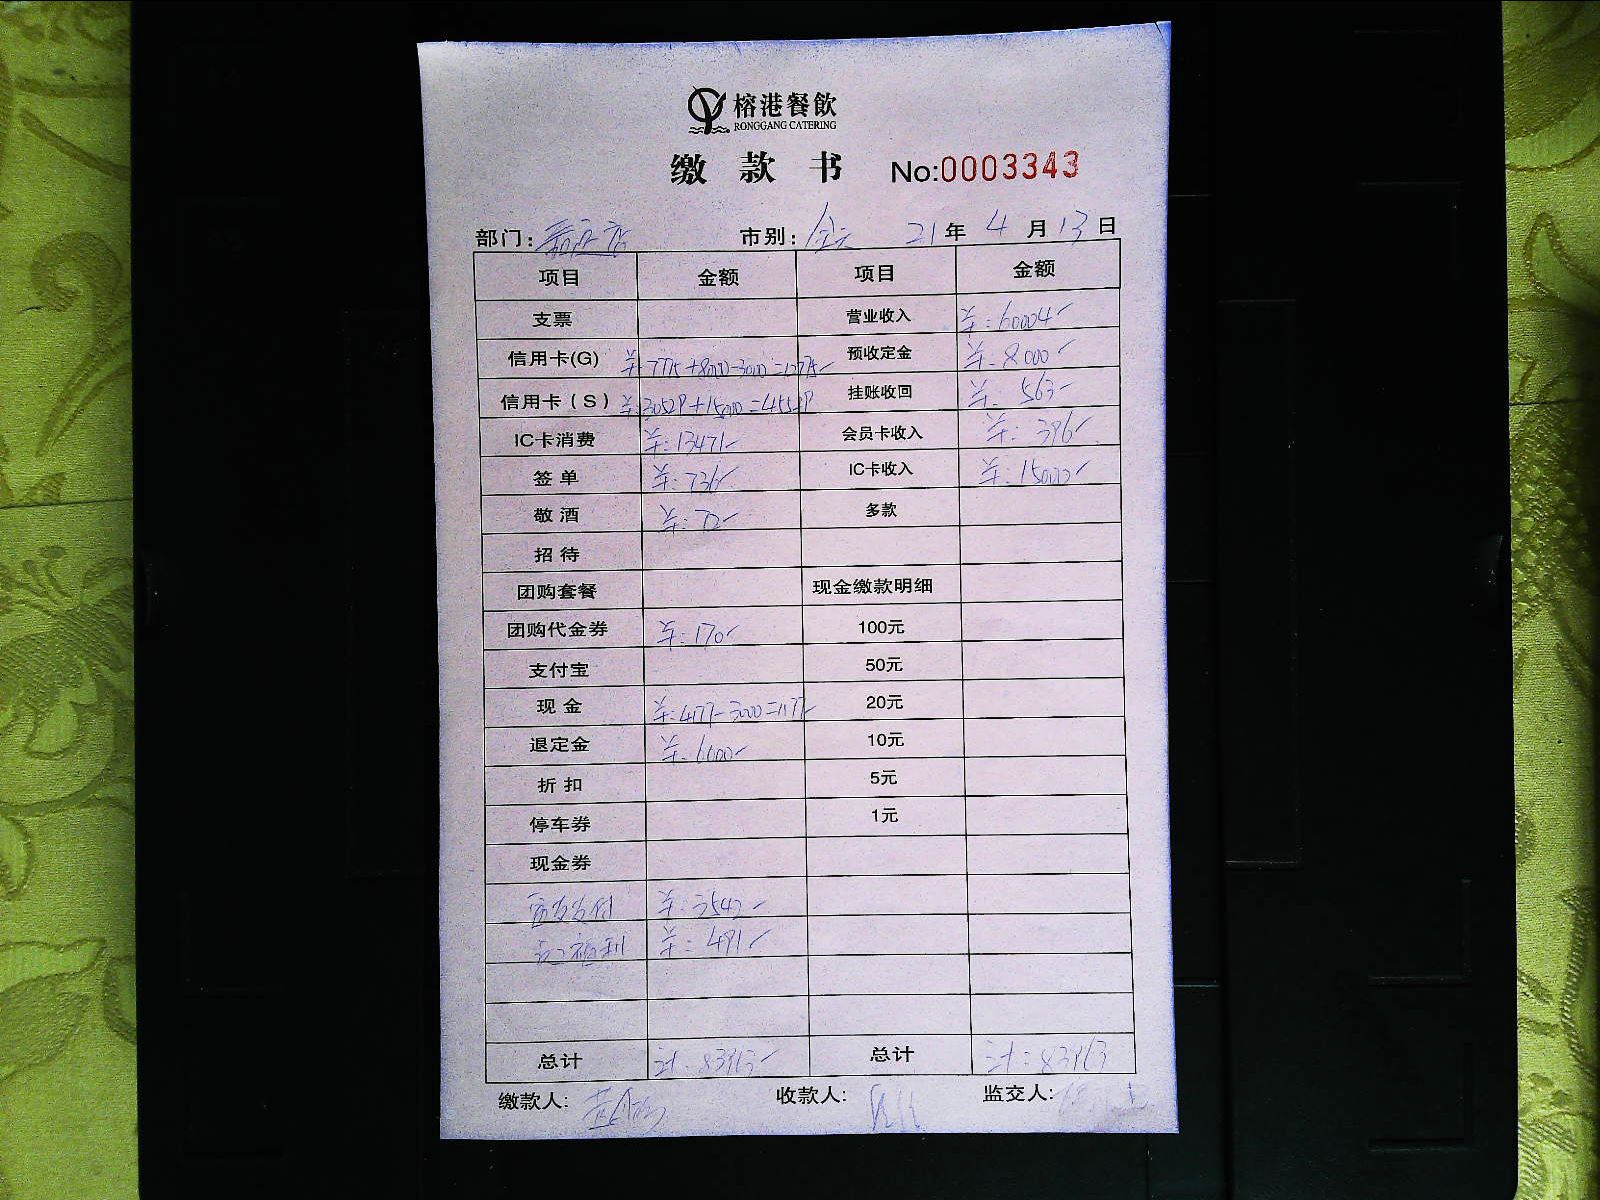 榕港餐飲
RONGGANG CATERING
缴款书 No:0003343
部门: 市别: 全天 21年4月13日
项目 金额 项目 金额
支票 营业收入 ¥:60004
信用卡(G) ¥:7775+8000-3000=12775 预收定金 ¥:8000
信用卡(S) ¥:30529+15000=45529 挂账收回 ¥:563
IC卡消费 ¥:13471 会员卡收入 ¥:396
签单 ¥:736 IC卡收入 ¥:15000
敬酒 ¥:72 多款
招待
团购套餐 现金缴款明细
团购代金券 ¥:170 100元
支付宝 50元
现金 ¥:4177-3000=1177 20元
退定金 ¥:6000 10元
折扣 5元
停车券 1元
现金券
¥:3542
员工福利 ¥:491
总计 计:83963 总计 计:83963
缴款人: 收款人: 监交人: